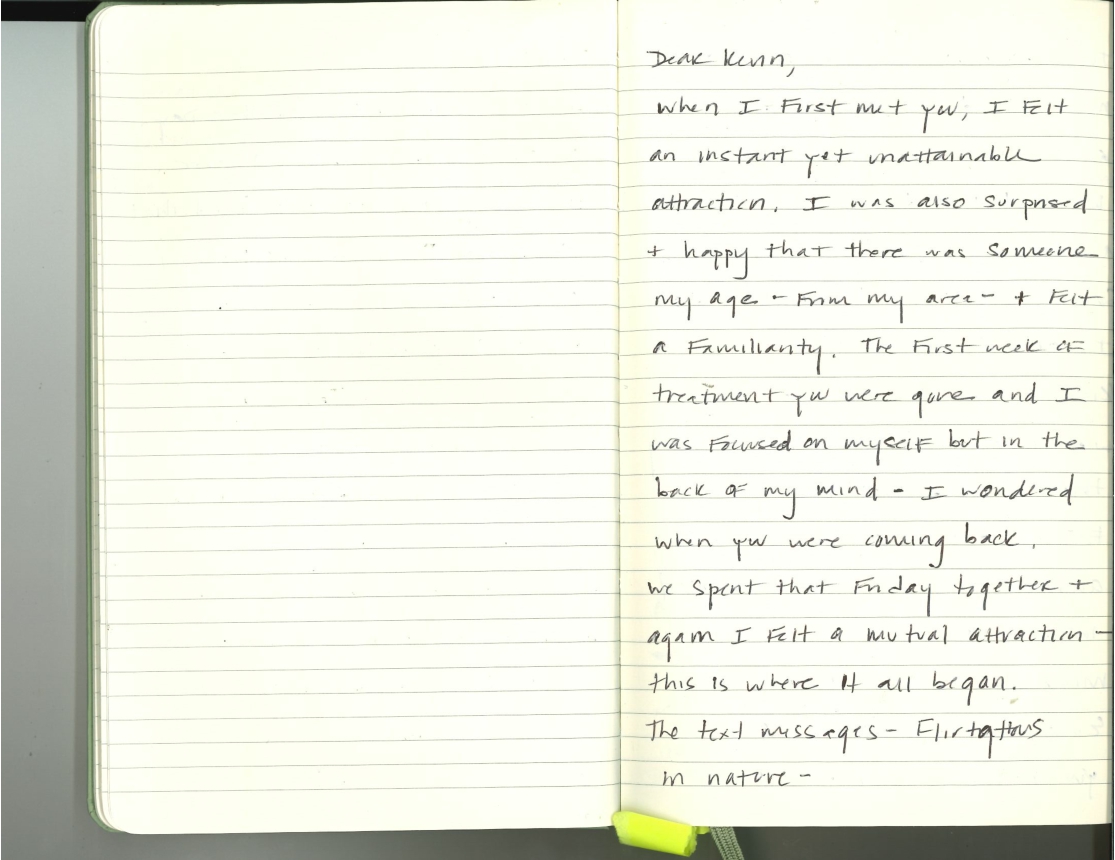 Dear Kenn,
when I First met you, I Felt
an instant yet unattainable
attraction. I was also surprised
+ happy that there was someone
my age - From my area - + Felt
a Familiarity. The First week of
treatment you were gone and I
was Focused on myself but in the
back of my mind - I wondered
when you were coming back.
we spent that Friday together +
again I Felt a mutual attraction -
this is where it all began.
The text messages - Flirtatious
in nature -